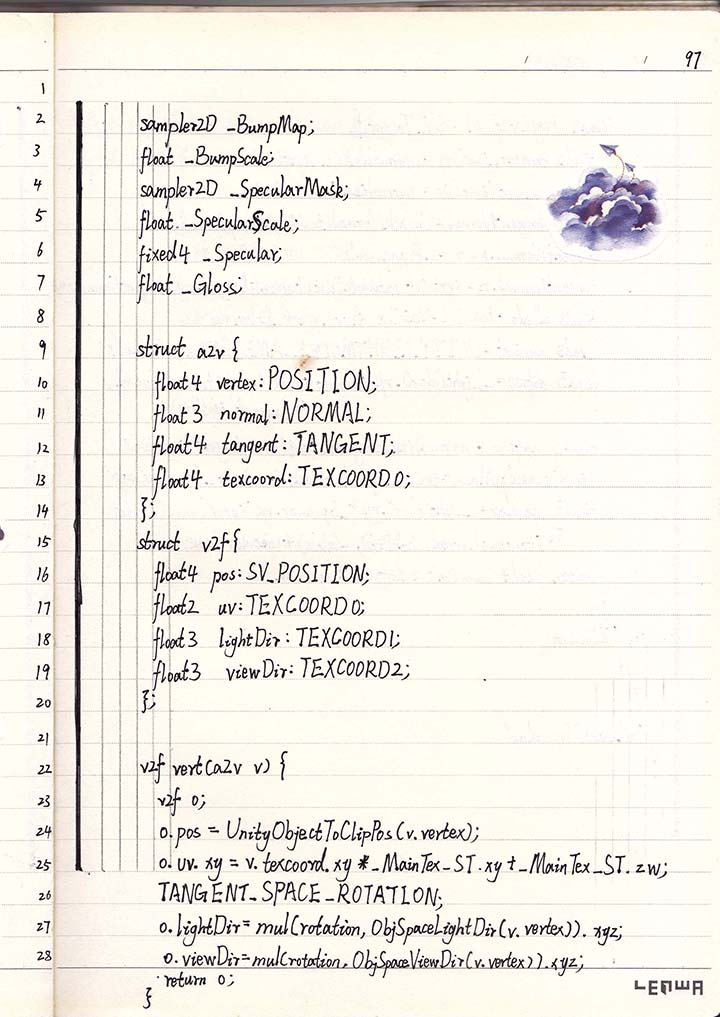 97
1
2 sampler2D _BumpMap;
3 float _BumpScale;
4 sampler2D _SpecularMask;
5 float _SpecularScale;
6 fixed4 _Specular;
7 float _Gloss;
8
9 struct a2v {
10 float4 vertex: POSITION;
11 float3 normal: NORMAL;
12 float4 tangent: TANGENT;
13 float4 texcoord: TEXCOORD0;
14 };
15 struct v2f {
16 float4 pos: SV_POSITION;
17 float2 uv: TEXCOORD0;
18 float3 lightDir: TEXCOORD1;
19 float3 viewDir: TEXCOORD2;
20 };
21
22 v2f vert(a2v v) {
23 v2f o;
24 o.pos = UnityObjectToClipPos(v.vertex);
25 o.uv.xy = v.texcoord.xy * _MainTex_ST.xy + _MainTex_ST.zw;
26 TANGENT_SPACE_ROTATION;
27 o.lightDir = mul(rotation, ObjSpaceLightDir(v.vertex)).xyz;
28 o.viewDir = mul(rotation, ObjSpaceViewDir(v.vertex)).xyz;
return o;
}